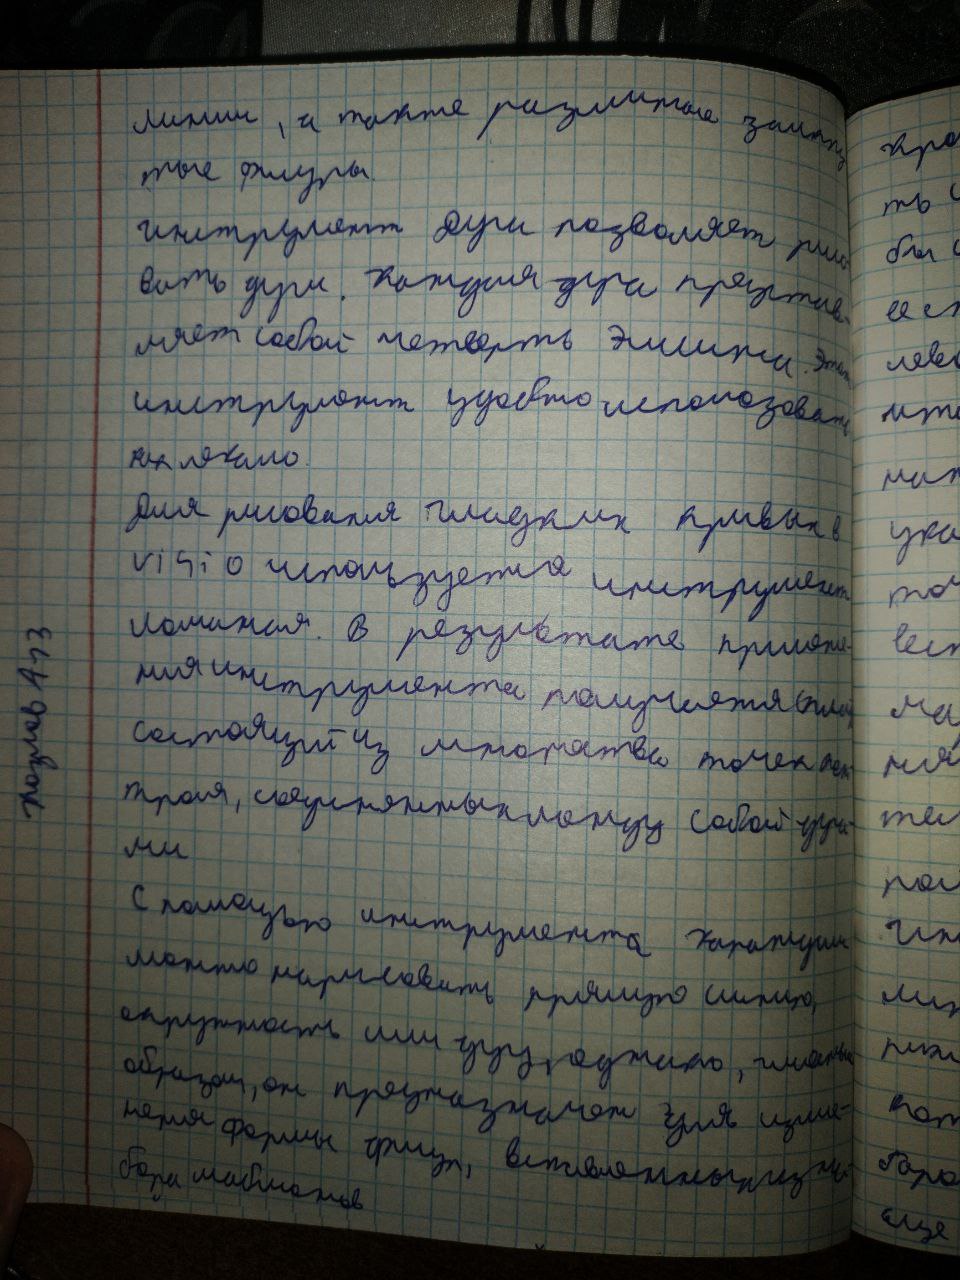 линии, а также различные замкну
тые фигуры.
инструмент Дуги позволяет рисо
вать дуги. Каждая дуга представ-
ляет собой четверть Эллипса. Этот
инструмент удобно использовать
как лекало.
Для рисования гладких кривых в
Visio используется инструмент
Ломаная. В результате примене-
ния инструмента получается
состоящий из множества точек кон-
троля, соединенных между собой дуга-
ми
С помощью инструмента Карандаш
можно нарисовать прямую линию,
окружность или дугу, однако, главным
образом, он предназначен для изме-
нения формы фигур, вставленных из на-
бора шаблонов
Козлов А-73
кра
ть
бы
ее
лево
мож
наж
ука
точ
вест
ма
ния
те
пол
Ин
лин
рис
кот
бара
еще